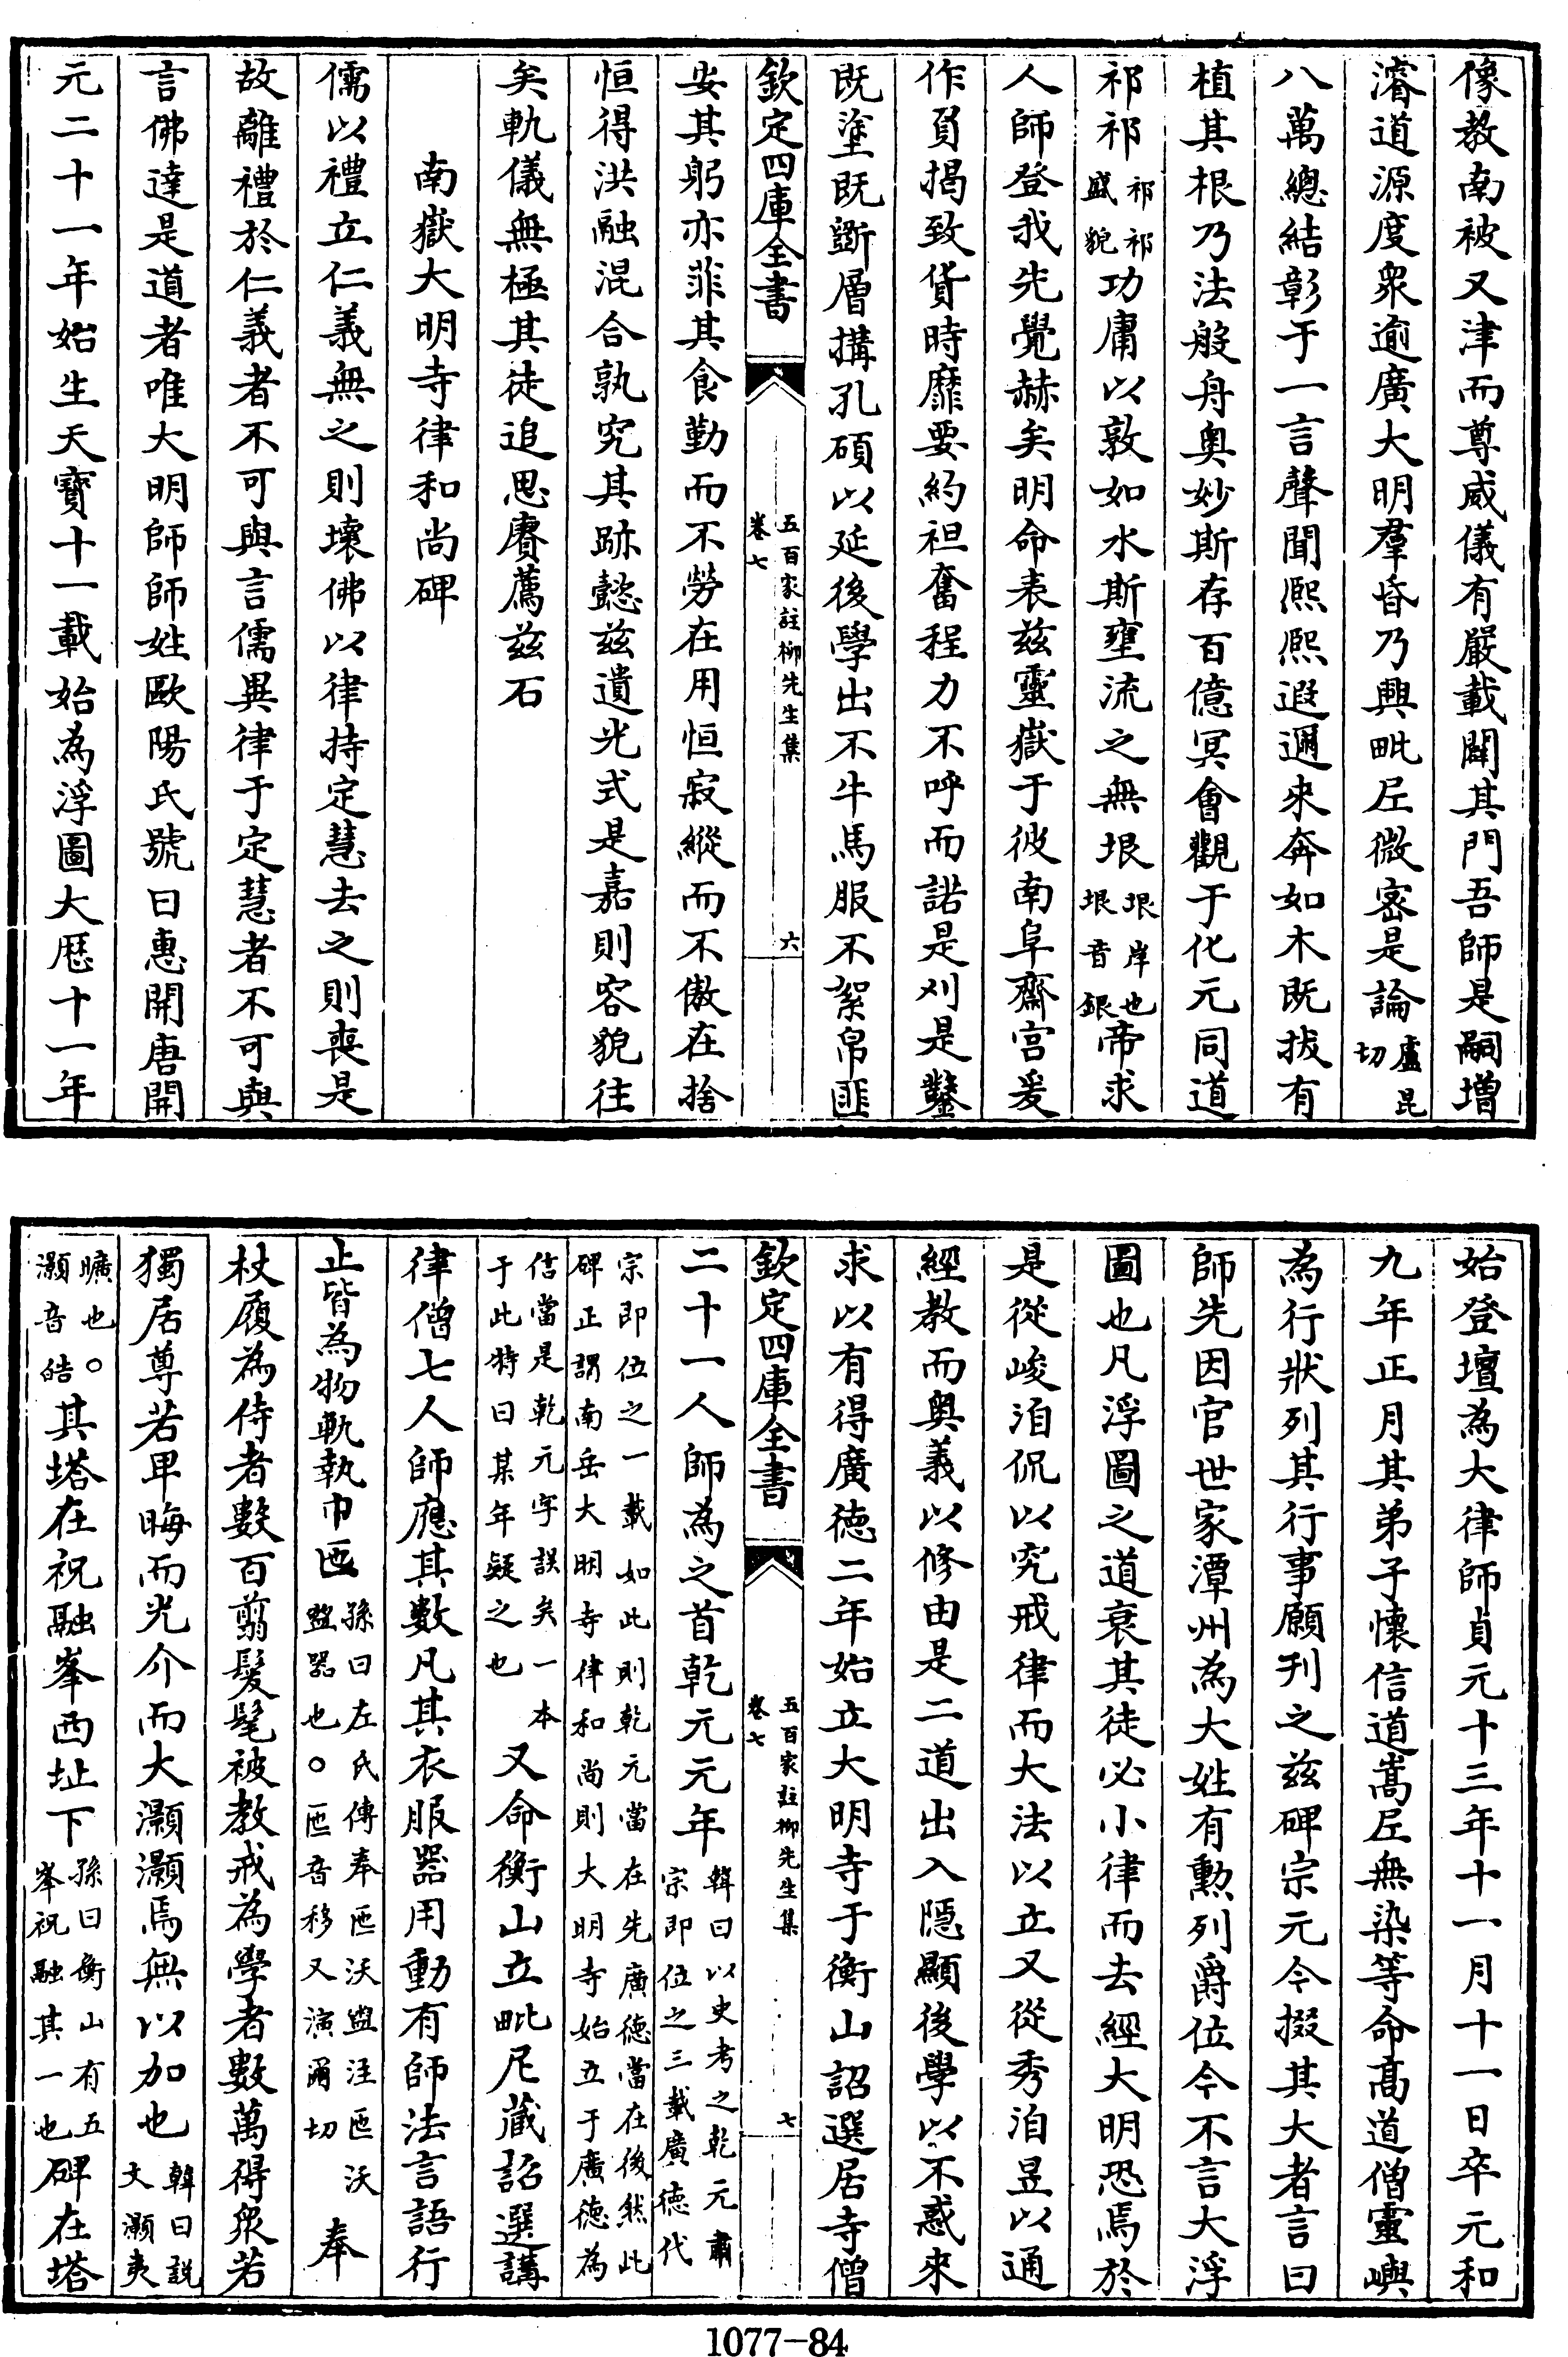 像教南被又津而尊威儀有嚴載闢其門吾師是嗣增
濬道源度衆逾廣大明羣昏乃興毗尼微密是論盧昆切
八萬總結彰于一言聲聞熙熙遐邇來奔如木既拔有
植其根乃法般舟奧妙斯存百億冥會觀于化元同道
祁祁祁祁盛貌功庸以敦如水斯壅流之無垠垠岸也垠音銀帝求
人師登我先覺赫矣明命表茲靈嶽于彼南阜齋宮爰
作負揭致貨時靡要約袒奮程力不呼而諾是刈是鑿
既塗既斲層搆孔碩以延後學出不牛馬服不絮帛匪
欽定四庫全書 五百家註柳先生集 卷七 六
安其躬亦菲其食勤而不勞在用恒寂縱而不傲在捨
恒得洪融混合孰究其跡懿茲遺光式是嘉則容貌往
矣軌儀無極其徒追思賡薦茲石
南嶽大明寺律和尚碑
儒以禮立仁義無之則壞佛以律持定慧去之則喪是
故離禮於仁義者不可與言儒異律于定慧者不可與
言佛達是道者唯大明師師姓歐陽氏號曰惠開唐開
元二十一年始生天寶十一載始為浮圖大歷十一年
始登壇為大律師貞元十三年十一月十一日卒元和
九年正月其弟子懷信道嵩尼無染等命高道僧靈嶼
為行狀列其行事願刊之茲碑宗元今掇其大者言曰
師先因官世家潭州為大姓有勲列爵位今不言大浮
圖也凡浮圖之道衰其徒必小律而去經大明恐焉於
是從峻洎侃以究戒律而大法以立又從秀洎昱以通
經教而奧義以修由是二道出入隱顯後學以不惑來
求以有得廣德二年始立大明寺于衡山詔選居寺僧
欽定四庫全書 五百家註柳先生集 卷七 七
二十一人師為之首乾元元年韓曰以史考之乾元肅宗即位之三載廣德代
宗即位之一載如此則乾元當在先廣德當在後然此碑正謂南岳大明寺律和尚則大明寺始立于廣德為
信當是乾元字誤矣一本于此特曰某年疑之也又命衡山立毗尼藏詔選講
律僧七人師應其數凡其衣服器用動有師法言語行
止皆為物軌執巾匜孫曰左氏傳奉匜沃盥注匜沃盥器也○匜音移又演爾切奉
杖履為侍者數百翦髮髦被教戒為學者數萬得衆若
獨居尊若卑晦而光介而大灝灝焉無以加也韓曰説文灝夷
曠也○灝音皓其塔在祝融峯西址下孫曰衡山有五峯祝融其一也碑在塔
1077-84